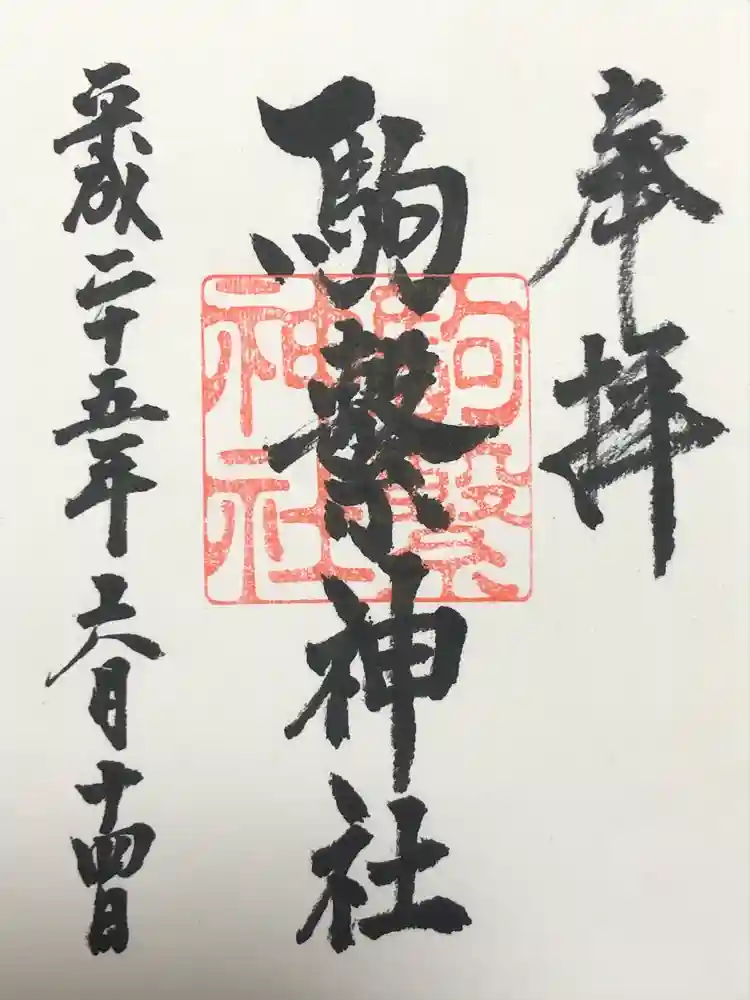 奉拝
駒繋神社
駒繋神社
平成二十五年六月十四日